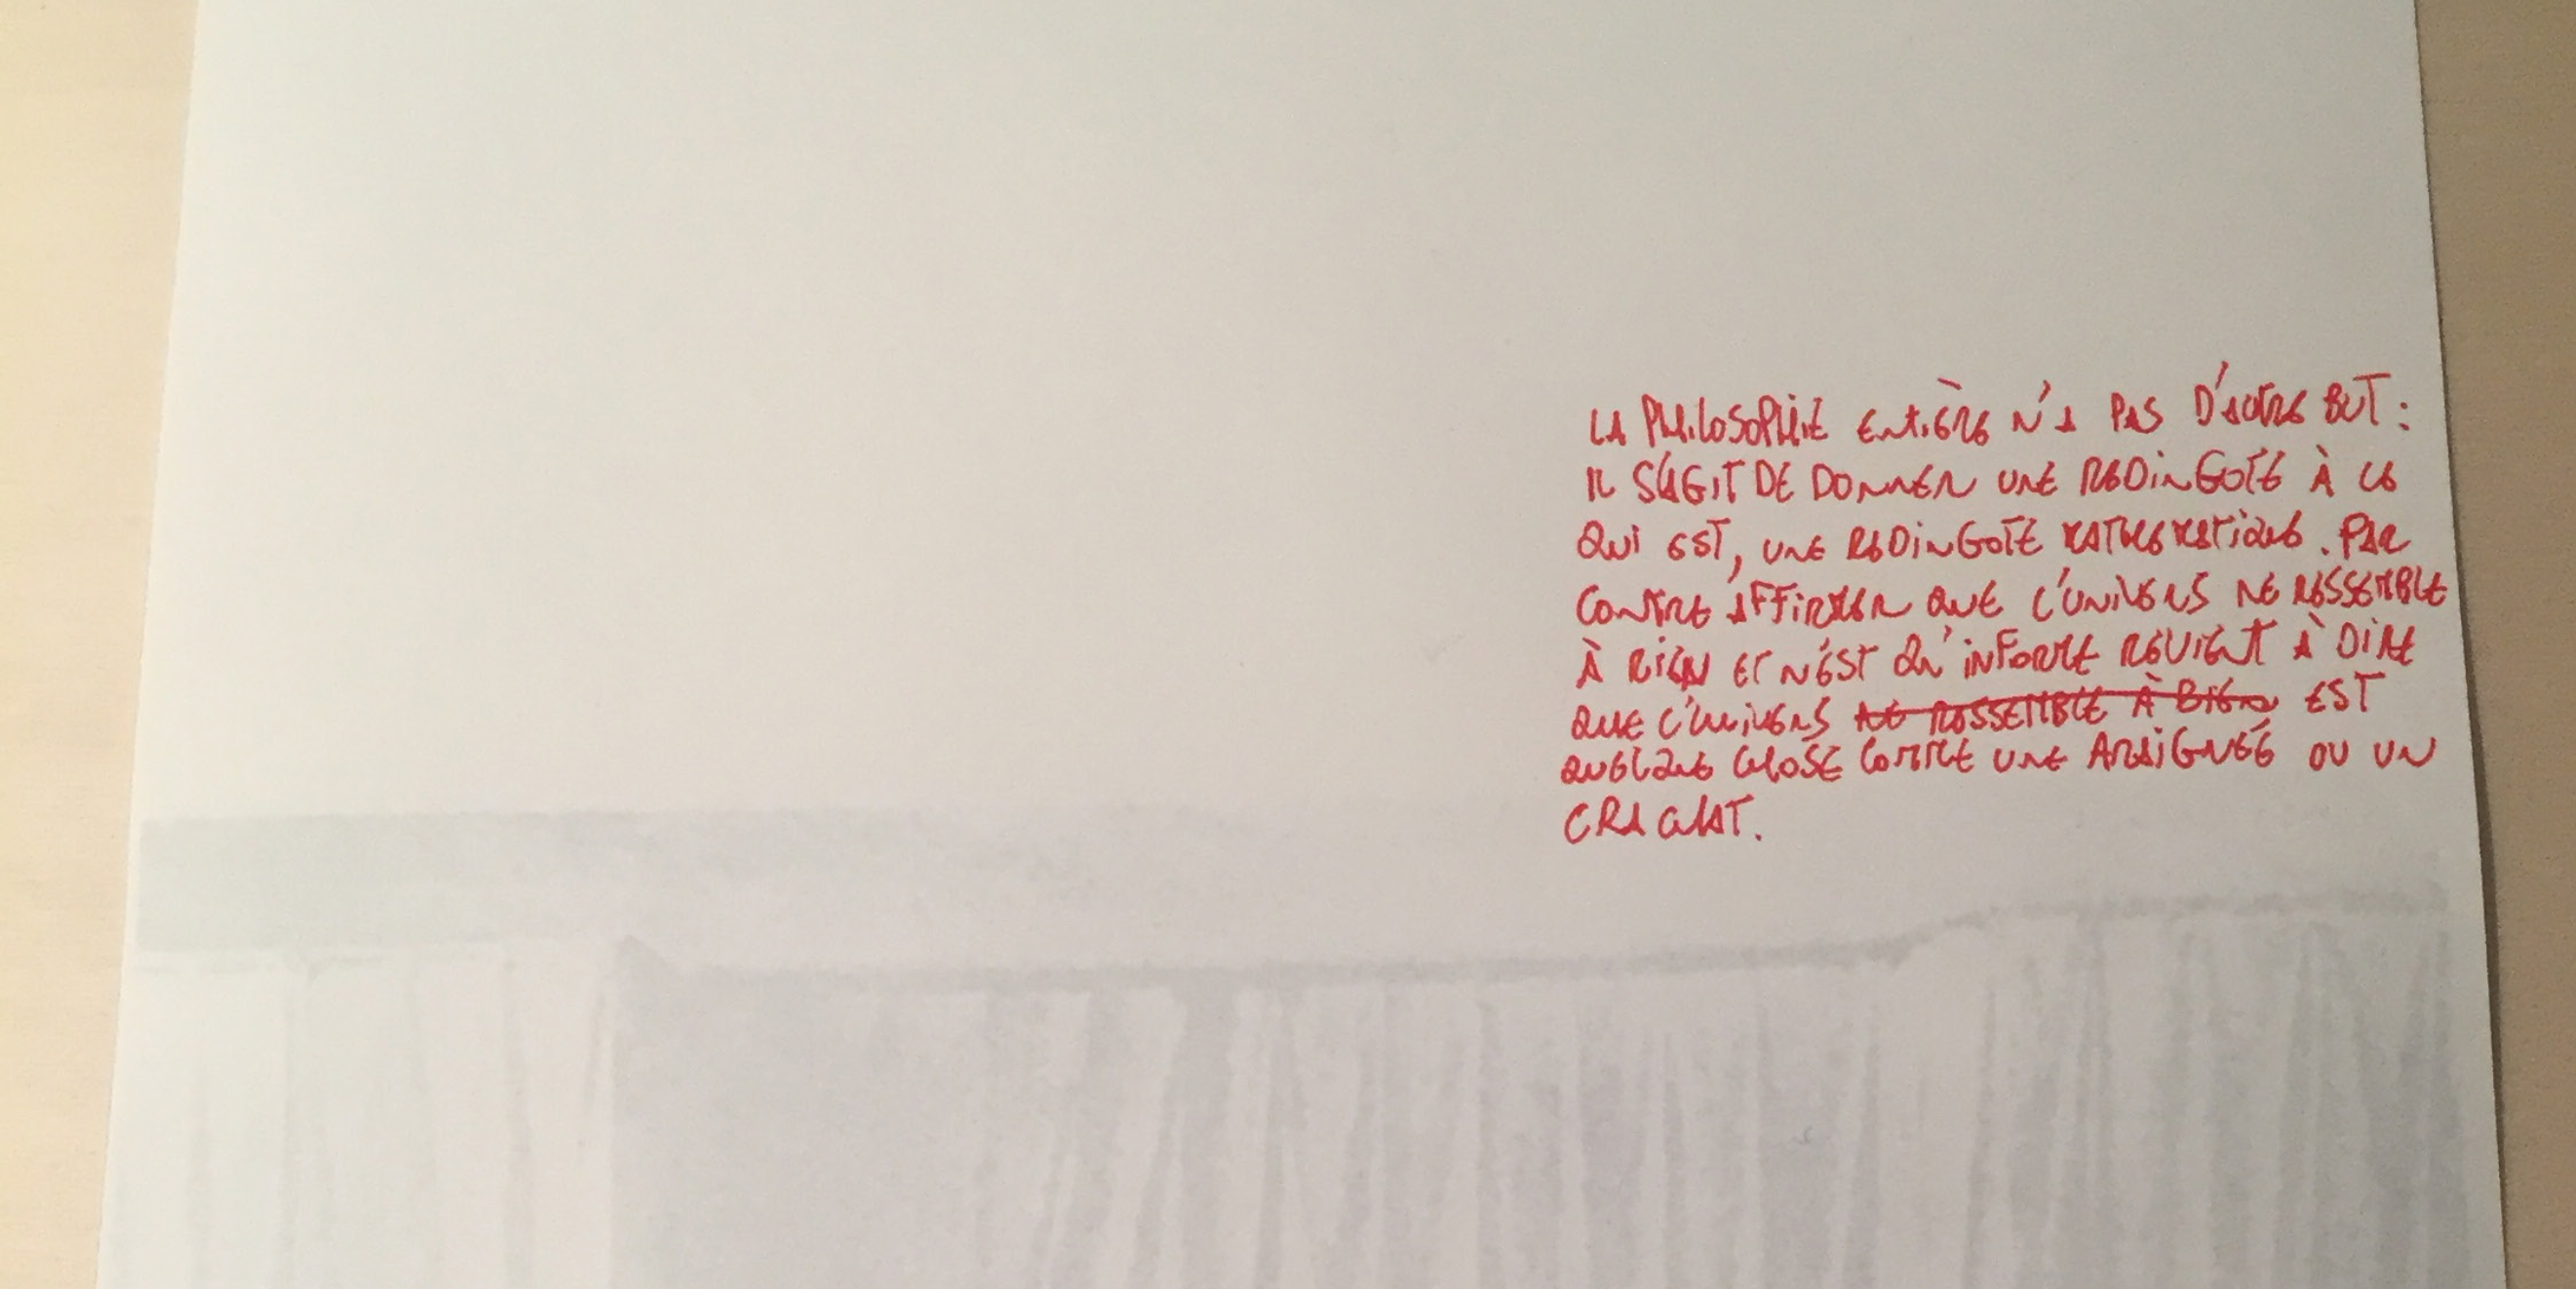 LA PHILOSOPHIE ENTIÈRE N'A PAS D'AUTRE BUT :
IL S'AGIT DE DONNER UNE REDINGOTE À CE
QUI EST, UNE REDINGOTE MATHEMATIQUE. PAR
CONTRE AFFIRMER QUE L'UNIVERS NE RESSEMBLE
À RIEN ET N'EST QU'INFORME REVIENT À DIRE
QUE L'UNIVERS NE RESSEMBLE À RIEN EST
QUELQUE CHOSE COMME UNE ARAIGNÉE OU UN
CRACHAT.